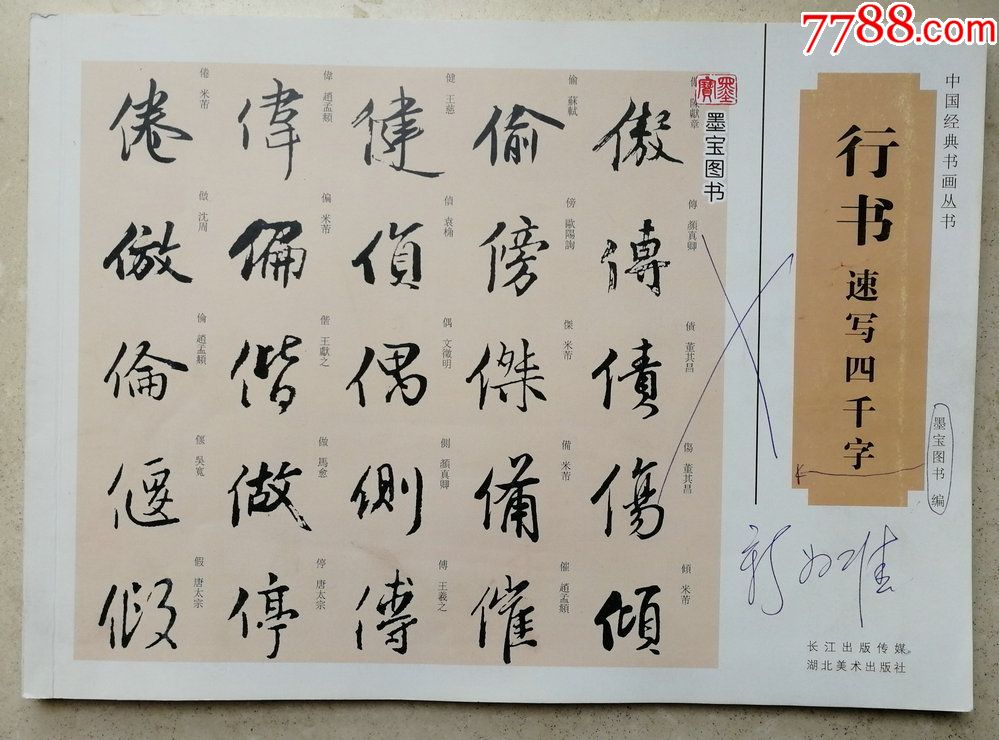 7788.com
中国经典书画丛书
行书 速写四千字
墨宝图书 编
长江出版传媒
湖北美术出版社
墨寶
墨宝图书
陳獻章
傲
傳 顔真卿
傳
債 董其昌
債
傷 董其昌
傷
傾 米芾
傾
偷 蘇軾
偷
傍 歐陽詢
傍
傑 米芾
傑
備 米芾
備
催 趙孟頫
催
健 王慈
健
偵 袁桷
偵
偶 文徵明
偶
側 顔真卿
側
傅 王羲之
傅
偉 趙孟頫
偉
偏 米芾
偏
偕 王獻之
偕
做 馬愈
做
停 唐太宗
停
倦 米芾
倦
倣 沈周
倣
倫 趙孟頫
倫
偃 吳寬
偃
假 唐太宗
假